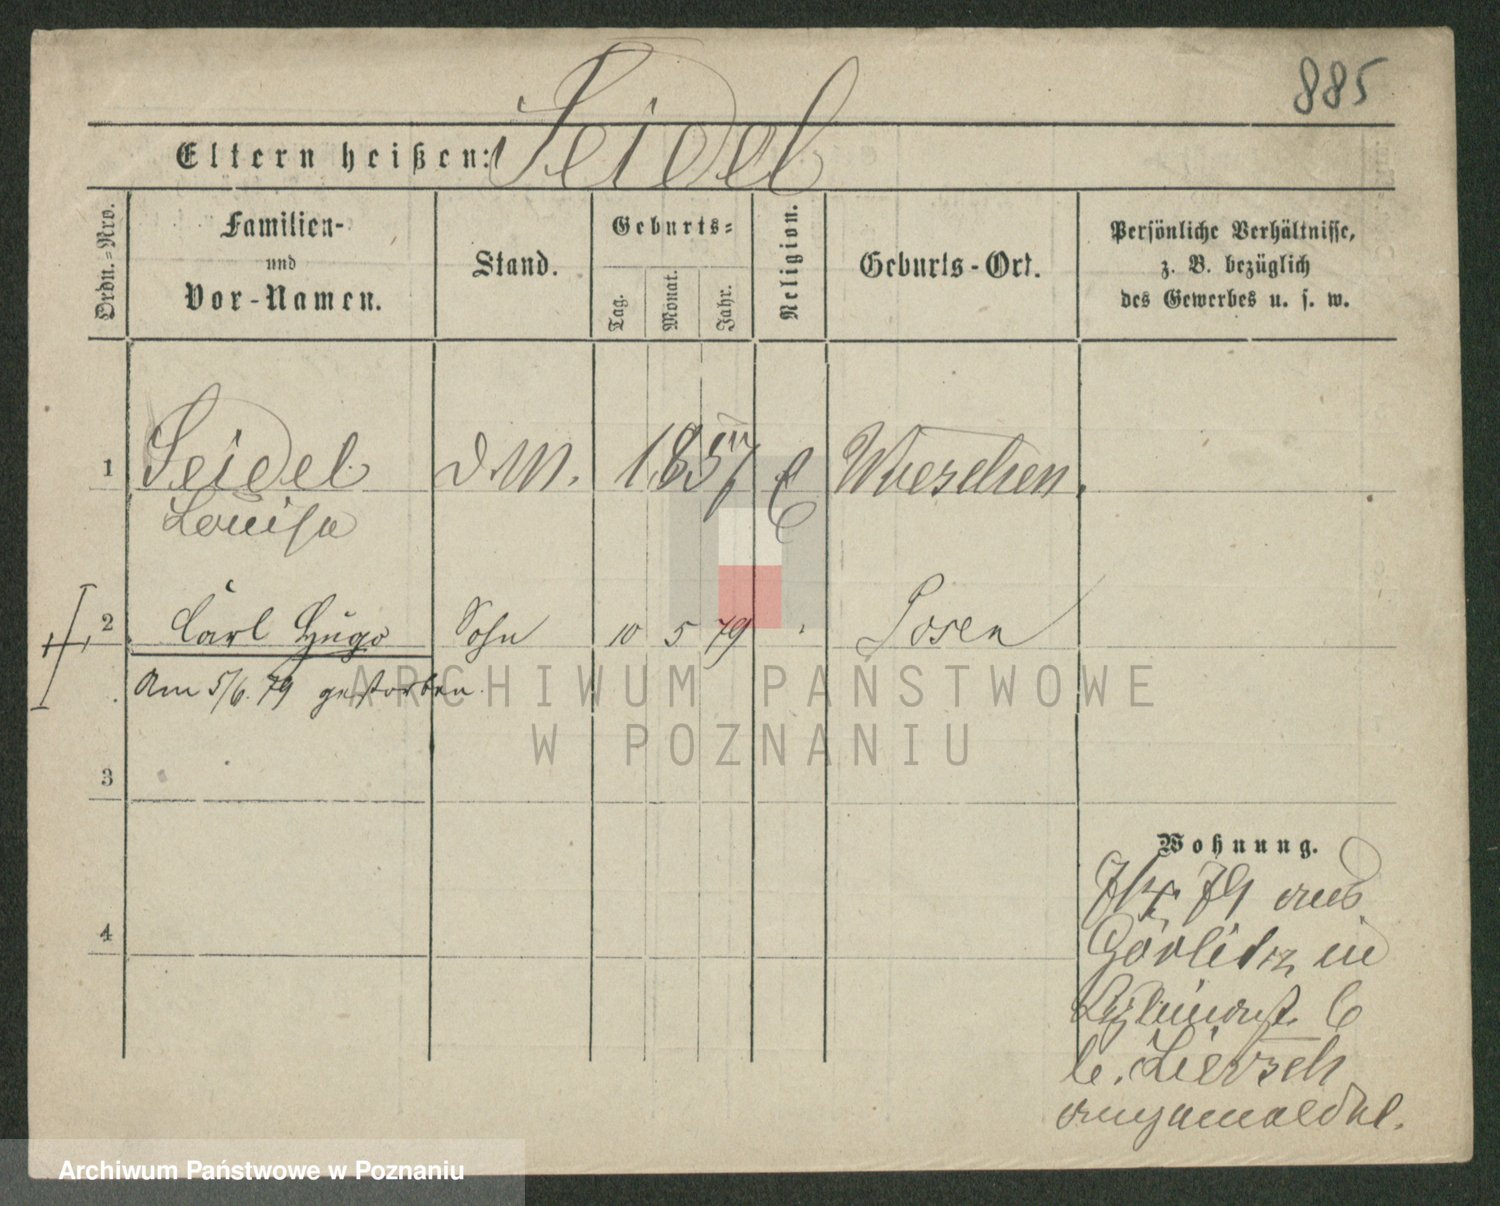 885
Eltern heißen: Seidel
Ordn.-Nro.
Familien-
und
Vor-Namen.
Stand.
Geburts-
Tag.
Monat.
Jahr.
Religion.
Geburts-Ort.
Persönliche Verhältnisse,
z. B. bezüglich
des Gewerbes u. s. w.
1 Seidel D.M. 1857 E Wreschen.
Louise
2 Carl Hugo Sohn 10 5 79 " Posen
Am 5/6. 79 gestorben.
3
4
Wohnung.
79 aus
Görlitz in
6
b. Liersch
angemeldet.
ARCHIWUM PAŃSTWOWE
W POZNANIU
Archiwum Państwowe w Poznaniu